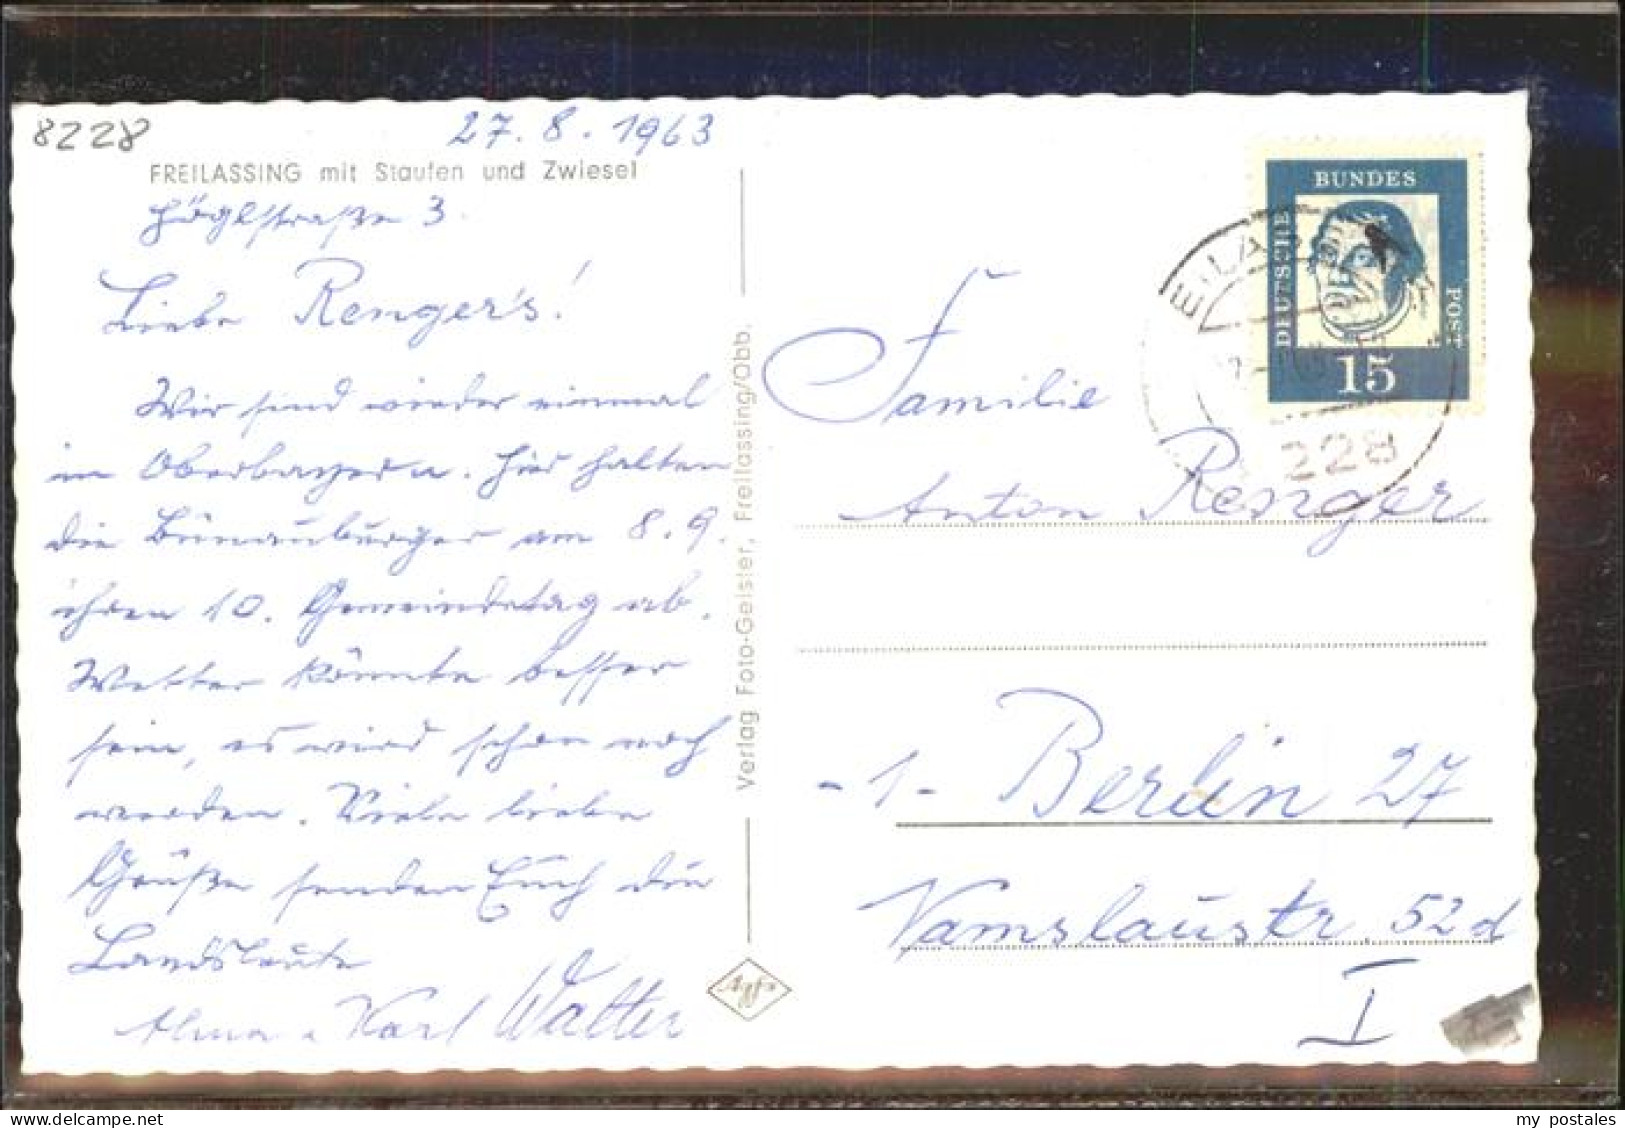 8228
27. 8. 1963
FREILASSING mit Staufen und Zwiesel
Höglstraße 3.
Liebe Renger's!
Wir sind wieder einmal
in Oberbayern. Hier halten
die Bünauburger am 8. 9.
ihren 10. Gemeindetag ab.
Wetter könnte besser
sein, es wird schon noch
werden. Viele liebe
Grüße senden Euch die
Landsleute
Alma u. Karl Walter
Verlag Foto-Geisler, Freilassing/Obb.
Agfa
DEUTSCHE
BUNDES
POST
15
EILA
228
Familie
Anton Renger
-1- Berlin 27
Namslaustr. 52d
I
delcampe.net
my_postales